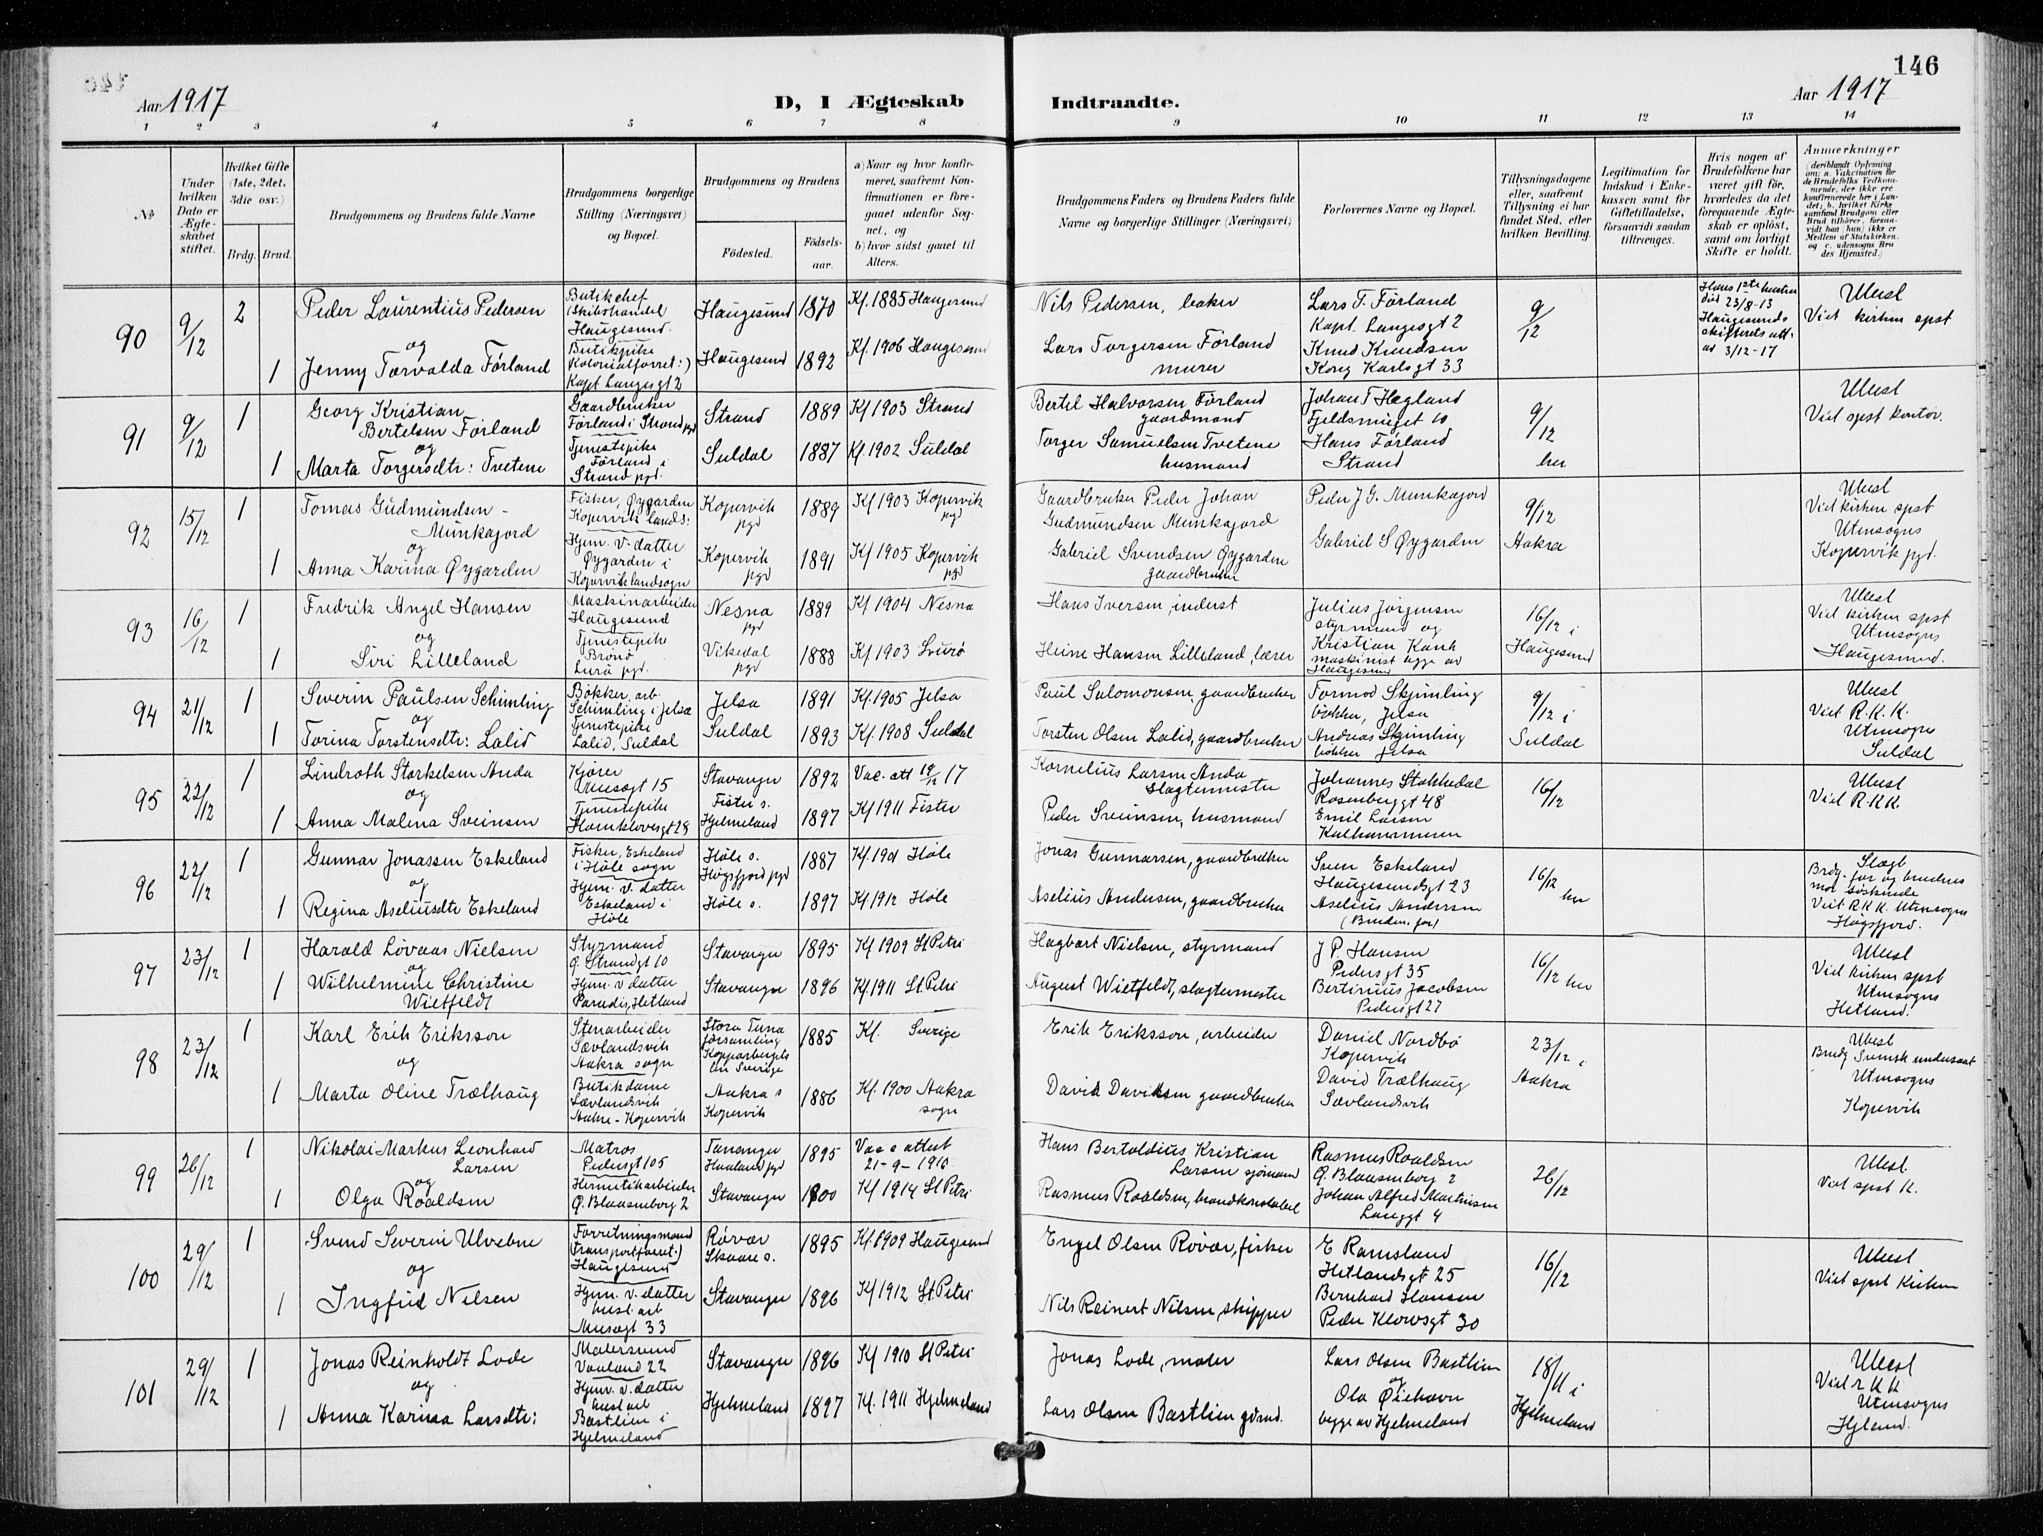 146
Aar 1917
D, I Ægteskab
Indtraadte.
Aar 1917
1 2 3 4 5 6 7 8 9 10 11 12 13 14
No
Under hvilken Dato er Ægteskabet stiftet.
Hvilket Gifte (1ste, 2det, 3die osv.)
Brdg. Brud.
Brudgommens og Brudens fulde Navne
Brudgommens borgerlige Stilling (Næringsvei) og Bopæl.
Brudgommens og Brudens
Fødested.
Fødselsaar.
a) Naar og hvor konfirmeret, saafremt Konfirmationen er foregaaet udenfor Sognet, og
b) hvor sidst gaaet til Alters.
Brudgommens Faders og Brudens Faders fulde Navne og borgerlige Stillinger (Næringsvei)
Forlovernes Navne og Bopæl.
Tillysningsdagene eller, saafremt Tillysning ei har fundet Sted, efter hvilken Bevilling.
Legitimation for Indskud i Enkekassen samt for Giftetilladelse, forsaavidt saadan tiltrænges.
Hvis nogen af Brudefolkene har været gift før, hvorledes da det foregaaende Ægteskab er opløst, samt om lovligt Skifte er holdt.
Anmærkninger
(deriblandt Oplysning om: a. Vaksination for de Brudefolks Vedkommende, der ikke ere konfirmerede her i Landet; b. hvilket Kirkesamfund Brudgom eller Brud tilhører, forsaavidt han (hun) ikke er Medlem af Statskirken, og c. udensogns Brudes Hjemsted.)
90
9/12
2
Peder Laurentius Pedersen
og
1
Jenny Torvalda Førland
Butikchef
(Skibshandel
Haugesund.
Butikpike
Kolonialforret:)
Kapt. Langesgt 2
Haugesund 1870 Kf. 1885 Haugesund
Haugesund 1892 Kf. 1906 Haugesund
Nils Pedersen, baker
Lars Torgersen Førland
murer
Lars T. Førland
Kapt. Langesgt 2
Knud Knudsen
Kong Karlsgt 33
9/12
Hans 1ste hustru
død 23/8-13
Haugesunds
skifterets att.
av 3/12-17
Ubesl
Viet kirken spst
91
9/12
1
Georg Kristian
Bertelsen Førland
og
1
Marta Torgersdtr: Tvetene
Gaardbruker
Førland i Strand pgd
Tjenestepike
Førland i
Strand pgd.
Strand 1889 Kf 1903 Strand
Suldal 1887 Kf. 1902 Suldal
Bertel Halvorsen Førland
gaardmand
Torger Samuelsen Tvetene
husmand
Johan T Hegland
Fjeldsmuget 10
Hans Førland
Strand
9/12
her
Ubesl
Viet spst kontor.
92
15/12
1
Tomas Gudmundsen
Munkajord
og
1
Anna Karina Øygarden
Fisker, Øygarden
Kopervik lands:
Hjem. v. datter
Øygarden i
Koperviklandsogn
Kopervik pgd 1889 Kf 1903 Kopervik pgd
Kopervik pgd 1891 Kf 1905 Kopervik pgd
Gaardbruker Peder Johan
Gudmundsen Munkajord
Gabriel Svendsen Øygarden
gaardbruker
Peder J G. Munkajord
Gabriel S Øygarden
9/12
Aakra
Ubesl
Viet kirken spst
Utensogns
Kopervik pgd.
93
16/12
1
Fredrik Angel Hansen
og
1
Siri Lilleland
Maskinarbeider
Haugesund
Tjenestepike
i
pgd.
Nesna pgd 1889 Kf 1904 Nesna
Vikedal pgd 1888 Kf 1903
Hans Iversen, inderst
Heine Hansen Lilleland, lærer
Julius Jørgensen
styrmand og
Kristian
maskinist begge av
Haugesund
16/12 i
Haugesund
Ubesl
Viet kirken spst
Utensogns
Haugesund.
94
21/12
1
Severin Paulsen Schimling
og
1
Torina Torstensdtr: Lalid
Bøkker, arb.
Schimling i Jelsa
Tjenestepike
Lalid, Suldal
Jelsa 1891 Kf. 1905 Jelsa
Suldal 1893 Kf. 1908 Suldal
Paul Salomonsen, gaardbruker
Torsten Olsen Lalid, gaardbruker
Tormod Skjimling
bøkker, Jelsa
Andreas Skjimling
bøkker Jelsa
9/12 i
Suldal
Ubesl
Viet R.K.K.
Utensogns
Suldal
95
22/12
1
Lindroth Storkelsen Anda
og
1
Anna Malena Sveinsen
Kjører
15
Tjenestepike
28
Stavanger 1892 Vac. att 19/12 17
Fister s.
Hjelmeland 1897 Kf 1911 Fister
Kornelius Larsen Anda
Slagtermester
Peder Sveinsen, husmand
Johannes Stokkedal
Rosenberggt 48
Emil Larsen
16/12
Ubesl
Viet R.K.K.
96
22/12
1
Gunnar Jonassen Eskeland
og
1
Regina Aseliusdtr Eskeland
Fisker, Eskeland
i Høle sogn
Hjem. v. datter
Eskeland i
Høle
Høle s.
Høgsfjord pgd 1887 Kf. 1901 Høle
Høle s. 1897 Kf 1912 Høle
Jonas Gunnarsen, gaardbruker
Aselius Andersen, gaardbruker
Sven Eskeland
Haugesundsgt 23
Aselius Andersen
(Brudens far)
16/12
her
Slagt
Brdg. far og brudens
mor søskende
Viet R.K.K. Utensogns
Høgsfjord.
97
23/12
1
Harald Lovaas Nielsen
og
1
Wilhelmine Christine
Wietfeldt
Styrmand
Ø. Strandgt 10
Hjem. v datter
Paradis, Hetland
Stavanger 1895 Kf 1909 St Petri
Stavanger 1896 Kf 1911 St. Petri
Hagbart Nielsen, styrmand
August Wietfeldt, slagtermester
J P. Hansen
Pedersgt 35
Bertinius Jacobsen
Pedersgt 27
16/12 her
Ubesl
Viet kirken spst
Utensogns
Hetland.
98
23/12
1
Karl Erik Eriksson
og
1
Marta Oline Trælhaug
Stenarbeider
Sævlandsvik
Aakra sogn
Butikdame
Sævlandsvik
Aakra-Kopervik
Stora Tuna
församling
Kopparbergs
län Sverige 1885 Kf. Sverige
Aakra s
Kopervik 1886 Kf. 1900 Aakra
sogn
Erik Eriksson, arbeider
David Davidsen gaardbruker
Daniel Nordbø
Kopervik
David Trælhaug
Sævlandsvik
23/12 i
Aakra
Ubesl
Brudg Svensk undersaat
Utensogns
Kopervik
99
26/12
1
Nikolai Markus Leonhard
Larsen
og
1
Olga Roaldsen
Matros
Pedersgt 105
Hermetikarbeider
Ø. Blaasenborg 2
Tananger
Haaland pgd 1895 Vacc attest
21-9-1910
Stavanger 1900 Kf 1914 St Petri
Hans Bertoldius Kristian
Larsen sjømand
Rasmus Roaldsen, brandkonstabel
Rasmus Roaldsen
Ø. Blaasenborg 2
Johan Alfred Martinsen
Langgt 4
26/12
Ubesl.
Viet spst K.
100
29/12
1
Svend Severin Ulvebne
og
1
Ingfrid Nilsen
Forretningsmand
(Transportforret.)
Haugesund
Hjem. v. datter
husl. arb
Musegt 33
Røvær
Skaare s. 1895 Kf. 1909 Haugesund
Stavanger 1896 Kf 1912 St. Petri
Engel Olsen Røvær, fisker
Nils Reinert Nilsen, skipper
E Ramsland
Hetlandsgt 25
Bernhard Hansen
Peder Klowsgt 30
16/12
Ubesl
Viet spst Kirken
101
29/12
1
Jonas Reinholdt Lode
og
1
Anna Karina Larsdtr:
Malersvend
Vaaland 22
Hjem. v. datter
husl arb
Bastlien i
Hjelmeland
Stavanger 1896 Kf 1910 St Petri
Hjelmeland 1897 Kf. 1911 Hjelmeland
Jonas Lode, maler
Lars Olsen Bastlien gdmd.
Lars Olsen Bastlien
og
Ola Øiehavn
begge av Hjelmeland
18/11 i
Hjelmeland
Ubesl
Viet R K K
Utensogns
Hjelmd.